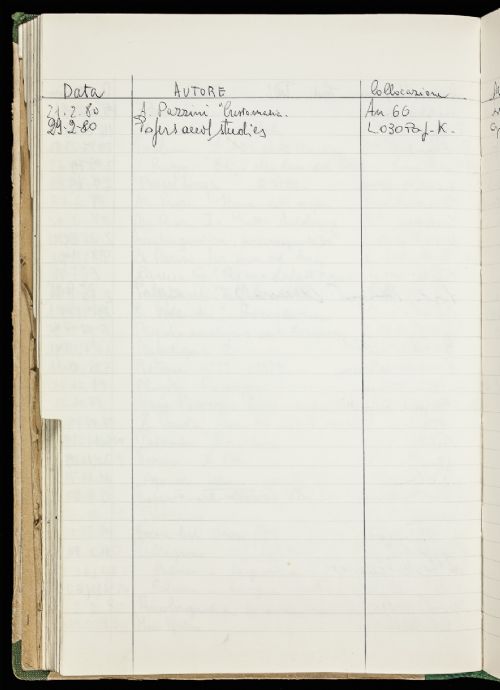 Data AUTORE Collocazione
21.2.80 A. Pazzini "Crestomazia. An. 66
29-2-80 Papers and studies L030